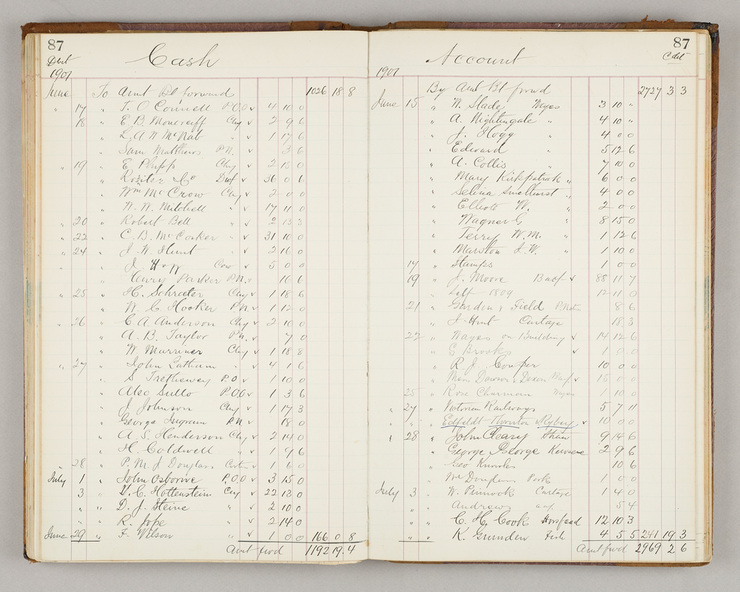 87
Cash
1901
June To Amt 1026 18 8
" 17 " P.O.O 4 10 0
" 18 " E B Moncrieff Chq 2 9 6
" L. A. W. McNab 1 17 6
" Sam Matthews P.N. 3 6
" 19 " E Phipp Chq 2 15 0
" 36 0 6
" Wm McCrow Chq 2 0 0
" W. W. Mitchell 17 11 0
" 20 " Robert Bell
" 22 " C. B. McCorker 31 10 0
" 24 " J. W. Hunt 2 10 0
" 5 0 0
" Parker P.N. 10 6
" 25 " H. Schroeter Chq 1 18 6
" W. C. Hooker P.N. 1 12 0
" 26 " C. A. Anderson Chq 2 10 0
" A. B. Taylor P.N. 7 0
" W. Marriner Chq 1 18 8
" 27 " John 4 1 6
" S Trethewey P.O. 1 10 0
" Alec P.O.O 1 3 6
" J Johnson Chq 1 17 3
" George Ingram P.N. 18 0
" A. S. Henderson Chq 2 14 0
" H. Coldwell 1 9 6
" 28 " P. M. J. Douglas 1 6 0
July 1 " John Osborne P.O.O 3 15 0
" 3 " D. C. Hottenstein Chq 22 13 0
" D. J. Steine 2 10 0
" R. Pope 2 14 0
June 29 " F. Wilson 1 0 0 166 0 8
Amt fwd 1192 19 4
87
Account
1901
By Amt Bt forwd 2727 3 3
June 15 " W. Slade Wages 3 10 "
" A. Nightingale " 4 10 "
" J. Hogg " 4 0 0
" Edward " 5 12 6
" A. Collis " 7 10 0
" Mary Kirkpatrick " 6 0 0
" Selina Smallhurst " 4 0 0
" Elliott W. " 2 0 0
" Wagner G " 8 15 0
" Terry W.M. " 1 12 6
" Marston J.W. " 1 10 0
17 " Stamps 1 0 0
19 " J. Moore 88 11 7
" 12 11 0
21 " Garden & Field 8 6
" J. Hunt Cartage 18 3
22 " Wages on Building 14 12 6
" E Brooks 1 0 0
" R. J. Cowper 10 0 0
" 15 0 0
25 " Rose Charman Wages 10 0
" 27 " Victorian Railways 5 7 11
" 10 0 0
" 28 " John Cleary 9 14 6
" George George Kerosene 2 9 6
" Geo 10 6
" Wm Douglas Pork 1 0 0
July 3 " W. Pennock Cartage 1 4 0
" Andrews 5 4
" C. H. Cook 12 10 3
" K. Fish 4 5 5 241 19 3
Amt fwd 2969 2 6